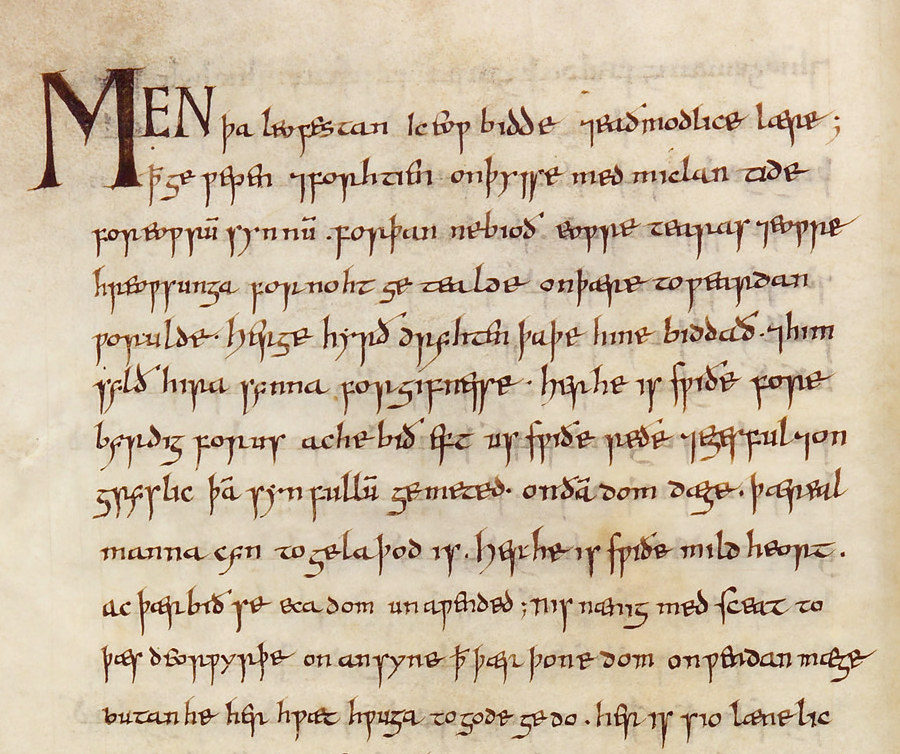 MEN þa leofestan ic eop bidde ⁊eadmodlice lære;
ꝥge pepen ⁊forhtien onþysse med miclan tide
foreoprū synnū. forþan nebioð eopre tearas ⁊eopre
hreopsunga fornoht ge tealde onþære topeardan
porulde· herge hyrð dryhten þaþe hine biddað· ⁊him
sylð hira synna forgifnesse· her he is spiðe fore
byrdig forus ac he bið eft us spiðe reðe ⁊egesful ⁊on
gryslic þā synfullū gemeted· onðā dom dæge. þæreal
manna cyn to gelaþod is. her he is spiðe mild heort.
ac þær bið se eca dom unapended; nis nænig med sceat to
þæs deorpyrþe on ansyne ꝥ þær þone dom onpendan mæge
butan he her hpæt hpuga to gode gedo. her is sio lænelic